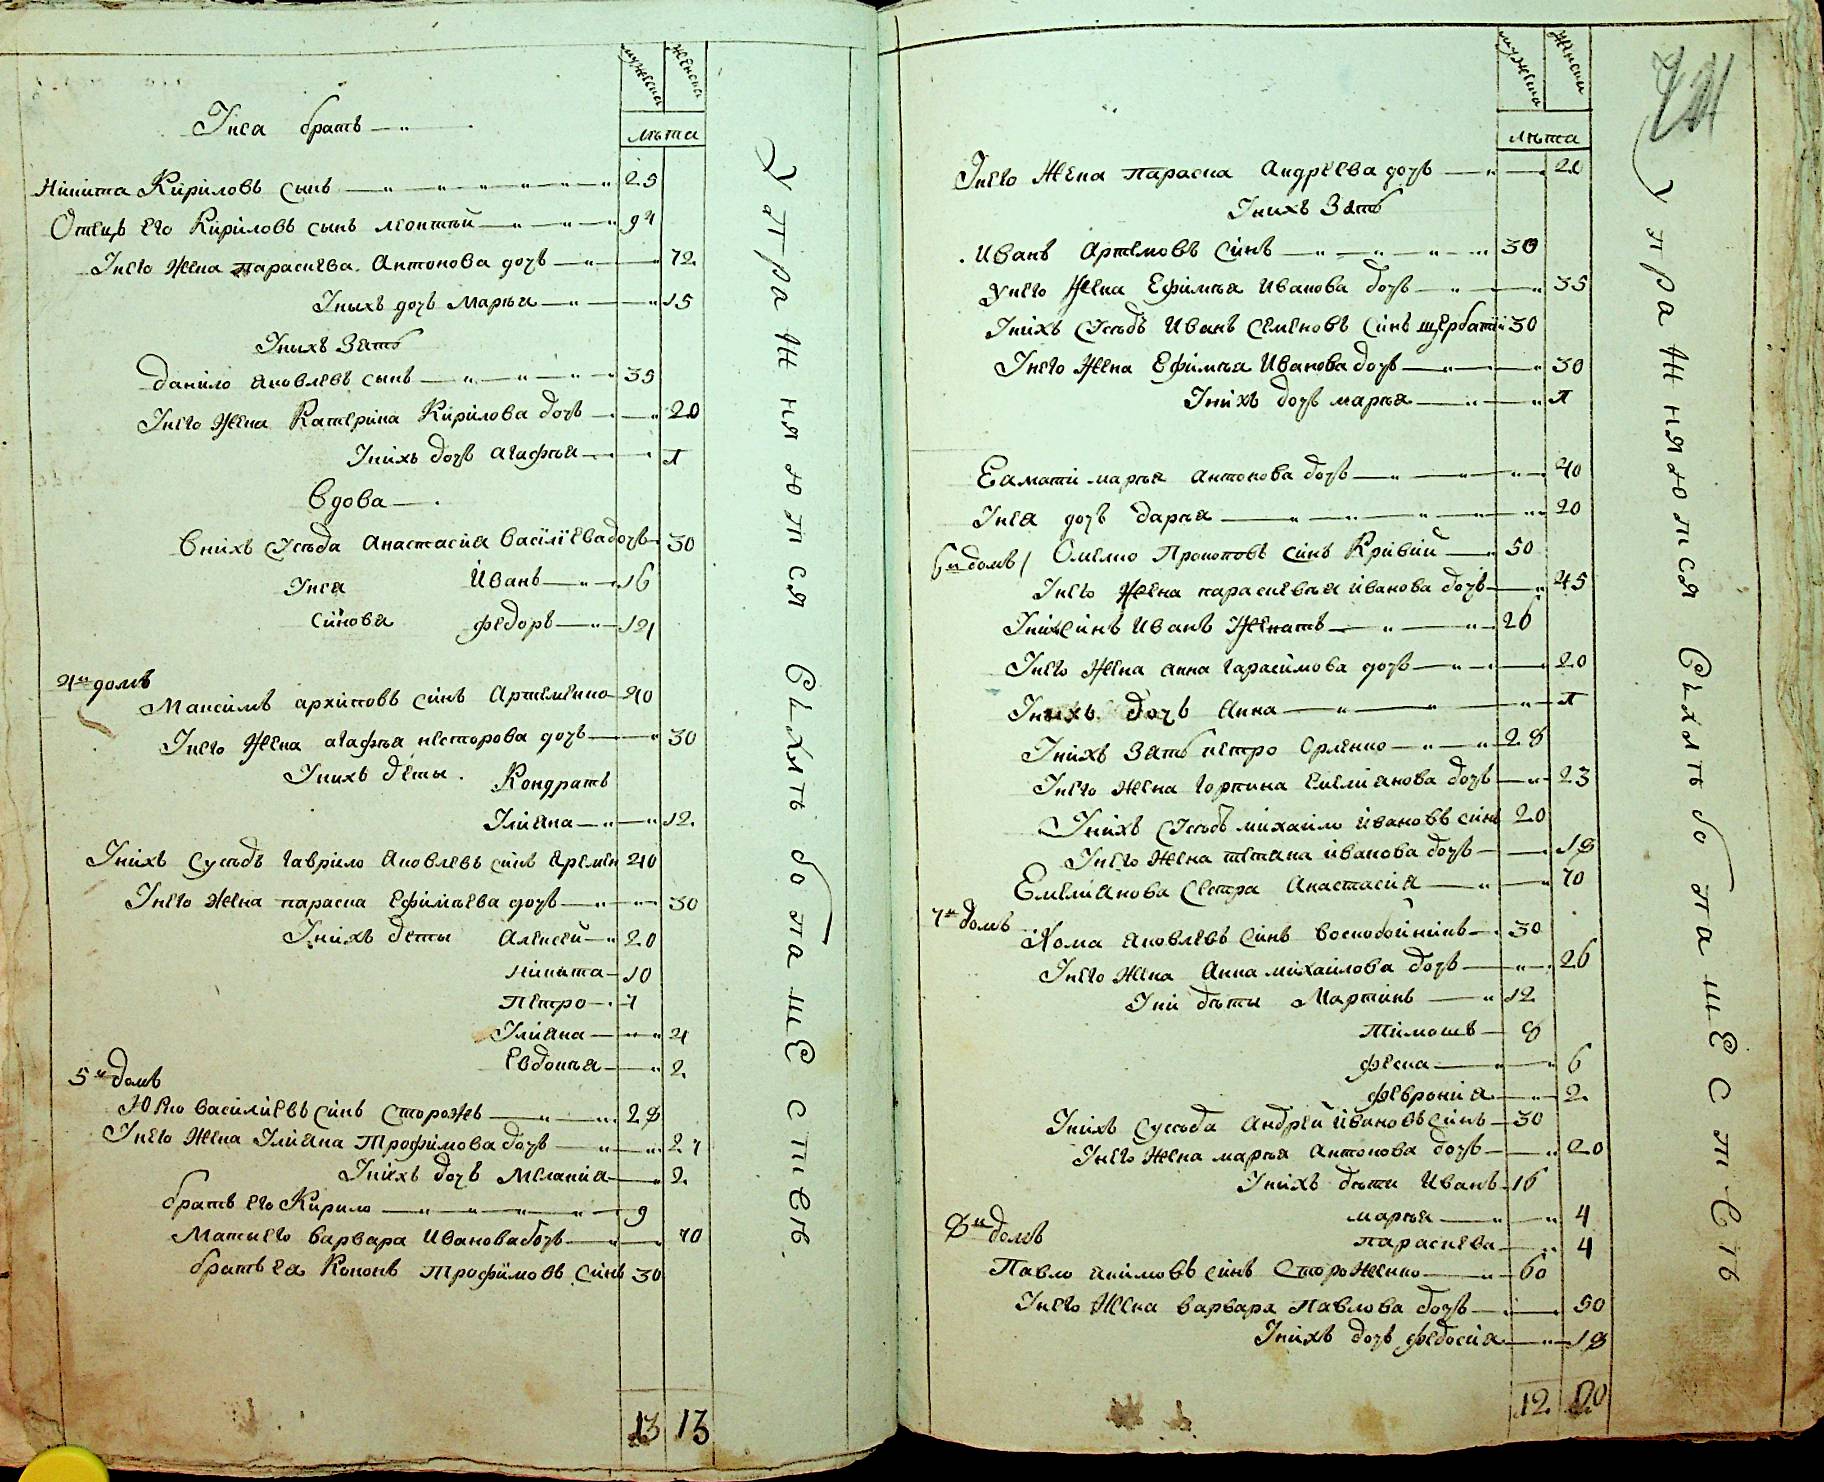 мужеска женска
лѣта
Інеа братъ
Никита Кириловъ сынъ 25
Отецъ его Кириловъ сынъ леонтѣй 94
Інего жена параскева Антонова дочъ 72
Іныхъ дочъ Маръя 15
Іныхъ Зять
данило яковлевъ сынъ 35
Інего жена Катерина Кирилова дочъ 20
Інихъ дочъ агафъя л
Вдова
Внихъ сусѣда Анастасия Василіева дочъ 30
Інея Иванъ 16
синовя федоръ 121
4й домъ
Максимъ архиповъ синъ Артеменко 40
Інего жена агафъя несторова дочъ 30
Інихъ дети Кондратъ
Іліяна 12
Інихъ сусѣдъ гаврило яковлевъ синъ яремен 40
Інего жена параска Ефимъева дочъ 30
Інихъ дети Алексей 20
никита 10
петро 7
Іліяна 4
Евдокъя 2
5й домъ
Юско василиевъ синъ сторожъ 28
Інего жена Іліяна трофимова дочъ 27
Інихъ дочъ меланія 2
братъ его Кирило 9
Мать его варвара Иванова дочъ 70
братъ ея Кононъ трофимовъ синъ 30
13 13
Упражняются въ хлѣбопашестве
мужеска женска
лѣта
Інего жена параска Андрѣева дочъ 20
Інихъ Зять
Иванъ Артемовъ синъ 30
Унего жена Ефимъя Иванова дочъ 35
Інихъ сусѣдъ Иванъ семеновъ синъ щербатій 30
Інего жена Ефимъя Иванова дочъ 30
Інихъ дочъ маръя л
Еамати маръя антонова дочъ 40
Інея дочъ даръя 20
6й домъ Омелко Прокоповъ синъ Кривий 50
Інего жена параскевъя иванова дочъ 45
Інихъ синъ иванъ женатъ 26
Інего жена анна гарасимова дочъ 20
Інихъ дочъ анна л
Інихъ зять петро Орленко 28
Інего жена горпина Емелиянова дочъ 23
Інихъ сусѣдъ михайло ивановъ синъ 20
Інего жена тетяна иванова дочъ 18
Емелиянова сестра Анастасия 70
7й домъ
Хома яковлевъ синъ воскобойникъ 30
Інего жена Анна михайлова дочъ 26
Іни дѣти Мартинъ 12
тимошъ 8
феска 6
феврония 2
Інихъ сусѣда Андрей Ивановъ синъ 30
Інего жена маръя антонова дочъ 20
Інихъ дѣти Иванъ 16
маръя 4
8й домъ
параскева 4
Павло якимовъ синъ Стороженко 60
Інего жена варвара павлова дочъ 50
Інихъ дочъ федосия 18
12 20
Упражняются въ хлѣбопашестве